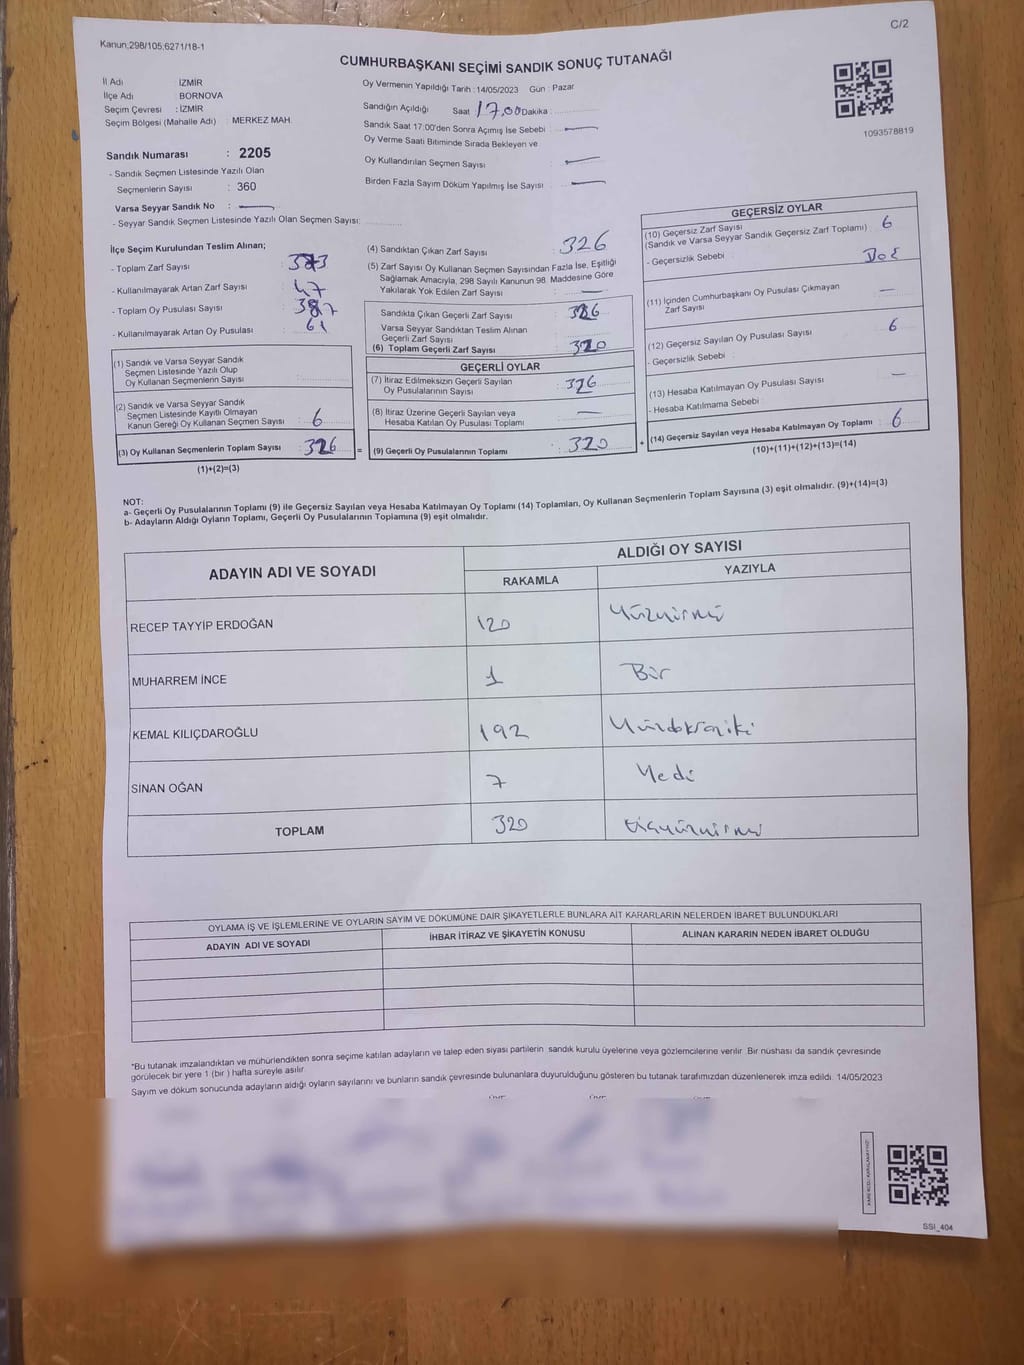 C/2
Kanun,298/105;6271/18-1
CUMHURBAŞKANI SEÇİMİ SANDIK SONUÇ TUTANAĞI
İl Adı : İZMİR
İlçe Adı : BORNOVA
Seçim Çevresi : İZMİR
Seçim Bölgesi (Mahalle Adı) : MERKEZ MAH.
Sandık Numarası : 2205
- Sandık Seçmen Listesinde Yazılı Olan
Seçmenlerin Sayısı : 360
Varsa Seyyar Sandık No :
- Seyyar Sandık Seçmen Listesinde Yazılı Olan Seçmen Sayısı:
Oy Vermenin Yapıldığı Tarih : 14/05/2023 Gün : Pazar
Sandığın Açıldığı Saat 17.00 Dakika :
Sandık Saat 17:00'den Sonra Açımış İse Sebebi :
Oy Verme Saati Bitiminde Sırada Bekleyen ve
Oy Kullandırılan Seçmen Sayısı
Birden Fazla Sayım Döküm Yapılmış İse Sayısı
1093578819
İlçe Seçim Kurulundan Teslim Alınan;
- Toplam Zarf Sayısı
- Kullanılmayarak Artan Zarf Sayısı : 47
- Toplam Oy Pusulası Sayısı : 387
- Kullanılmayarak Artan Oy Pusulası : 61
(1) Sandık ve Varsa Seyyar Sandık
Seçmen Listesinde Yazılı Olup
Oy Kullanan Seçmenlerin Sayısı
(2) Sandık ve Varsa Seyyar Sandık
Seçmen Listesinde Kayıtlı Olmayan
Kanun Gereği Oy Kullanan Seçmen Sayısı : 6
(3) Oy Kullanan Seçmenlerin Toplam Sayısı : 326
(1)+(2)=(3)
(4) Sandıktan Çıkan Zarf Sayısı : 326
(5) Zarf Sayısı Oy Kullanan Seçmen Sayısından Fazla İse, Eşitliği
Sağlamak Amacıyla, 298 Sayılı Kanunun 98. Maddesine Göre
Yakılarak Yok Edilen Zarf Sayısı
Sandıkta Çıkan Geçerli Zarf Sayısı : 326
Varsa Seyyar Sandıktan Teslim Alınan
Geçerli Zarf Sayısı
(6) Toplam Geçerli Zarf Sayısı : 320
GEÇERLİ OYLAR
(7) İtiraz Edilmeksizin Geçerli Sayılan
Oy Pusulalarının Sayısı : 326
(8) İtiraz Üzerine Geçerli Sayılan veya
Hesaba Katılan Oy Pusulası Toplamı
= (9) Geçerli Oy Pusulalarının Toplamı : 320 +
GEÇERSİZ OYLAR
(10) Geçersiz Zarf Sayısı
(Sandık ve Varsa Seyyar Sandık Geçersiz Zarf Toplamı) : 6
- Geçersizlik Sebebi :
(11) İçinden Cumhurbaşkanı Oy Pusulası Çıkmayan
Zarf Sayısı
(12) Geçersiz Sayılan Oy Pusulası Sayısı : 6
- Geçersizlik Sebebi :
(13) Hesaba Katılmayan Oy Pusulası Sayısı
- Hesaba Katılmama Sebebi
(14) Geçersiz Sayılan veya Hesaba Katılmayan Oy Toplamı : 6
(10)+(11)+(12)+(13)=(14)
NOT:
a- Geçerli Oy Pusulalarının Toplamı (9) ile Geçersiz Sayılan veya Hesaba Katılmayan Oy Toplamı (14) Toplamları, Oy Kullanan Seçmenlerin Toplam Sayısına (3) eşit olmalıdır. (9)+(14)=(3)
b- Adayların Aldığı Oyların Toplamı, Geçerli Oy Pusulalarının Toplamına (9) eşit olmalıdır.
ADAYIN ADI VE SOYADI
ALDIĞI OY SAYISI
RAKAMLA YAZIYLA
RECEP TAYYİP ERDOĞAN 120 Yüzyirmi
MUHARREM İNCE 1 Bir
KEMAL KILIÇDAROĞLU 192 Yüzdoksaniki
SİNAN OĞAN 7 Yedi
TOPLAM 320 Üçyüzyirmi
OYLAMA İŞ VE İŞLEMLERİNE VE OYLARIN SAYIM VE DÖKÜMÜNE DAİR ŞİKAYETLERLE BUNLARA AİT KARARLARIN NELERDEN İBARET BULUNDUKLARI
ADAYIN ADI VE SOYADI İHBAR İTİRAZ VE ŞİKAYETİN KONUSU ALINAN KARARIN NEDEN İBARET OLDUĞU
*Bu tutanak imzalandıktan ve mühürlendikten sonra seçime katılan adayların ve talep eden siyasi partilerin sandık kurulu üyelerine veya gözlemcilerine verilir. Bir nüshası da sandık çevresinde
görülecek bir yere 1 (bir ) hafta süreyle asılır.
Sayım ve döküm sonucunda adayların aldığı oyların sayılarını ve bunların sandık çevresinde bulunanlara duyurulduğunu gösteren bu tutanak tarafımızdan düzenlenerek imza edildi. 14/05/2023
SSI_404